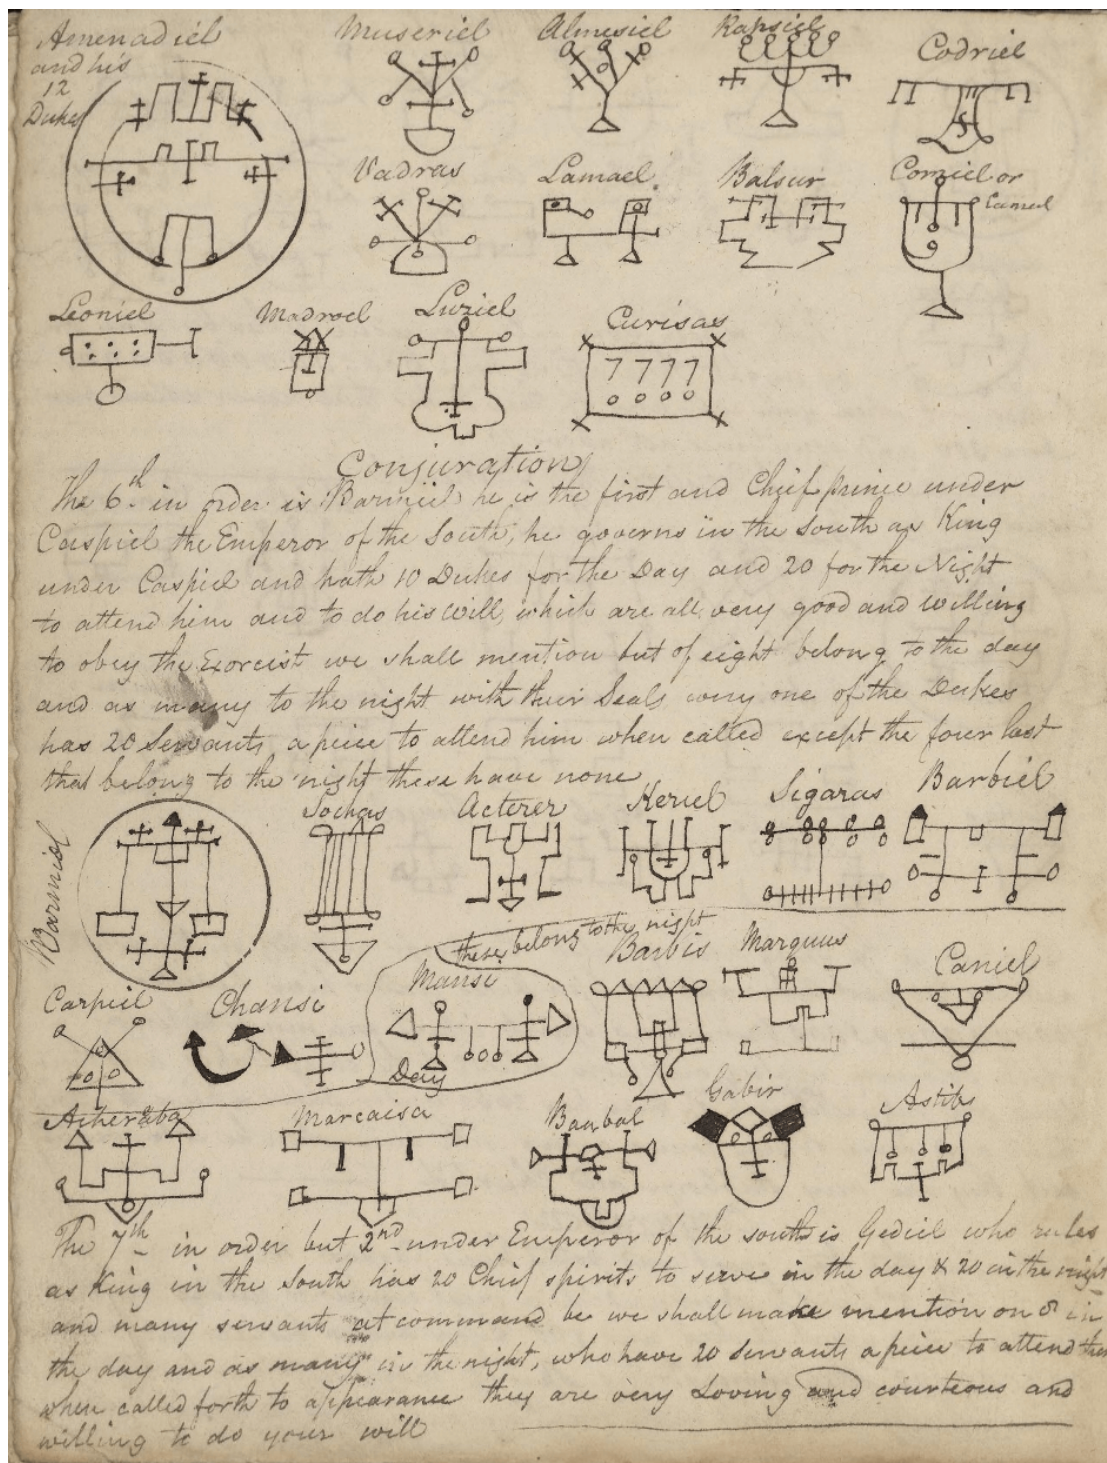 Amenadiel
and his
12
Dukes
Museriel
Almesiel
Rapsiel
Codriel
Vadras
Lamael.
Balsur
Comiel or
Camul
Leoniel
Madroel
Luziel
Curisas
7777
Conjuration
The 6th in order is Barmiel he is the first and Chief prince under
Caspiel the Emperor of the South, he governs in the South as King
under Caspiel and hath 10 Dukes for the Day and 20 for the Night
to attend him and to do his will, which are all very good and willing
to obey the Exorcist we shall mention but of eight belong to the day
and as many to the night with their Seals every one of the Dukes
has 20 Servants a peice to attend him when called except the four last
that belong to the night these have none
Barmiel
Sochas
Acterer
Keriel
Sigaras
Barbiel
these belong to the night
Carpiel
Chansi
Mansi
Day
Barbis
Marquus
Caniel
Acheraba
Marcaisa
Baabal
Gabir
Astib
The 7th in order but 2nd under Emperor of the south is Gediel who rules
as King in the South has 20 Chief spirits to serve in the day & 20 in the night
and many servants at command be we shall make mention on 8 in
the day and as many in the night, who have 20 servants a peice to attend them
when called forth to appearance they are very Loving and courteous and
willing to do your will